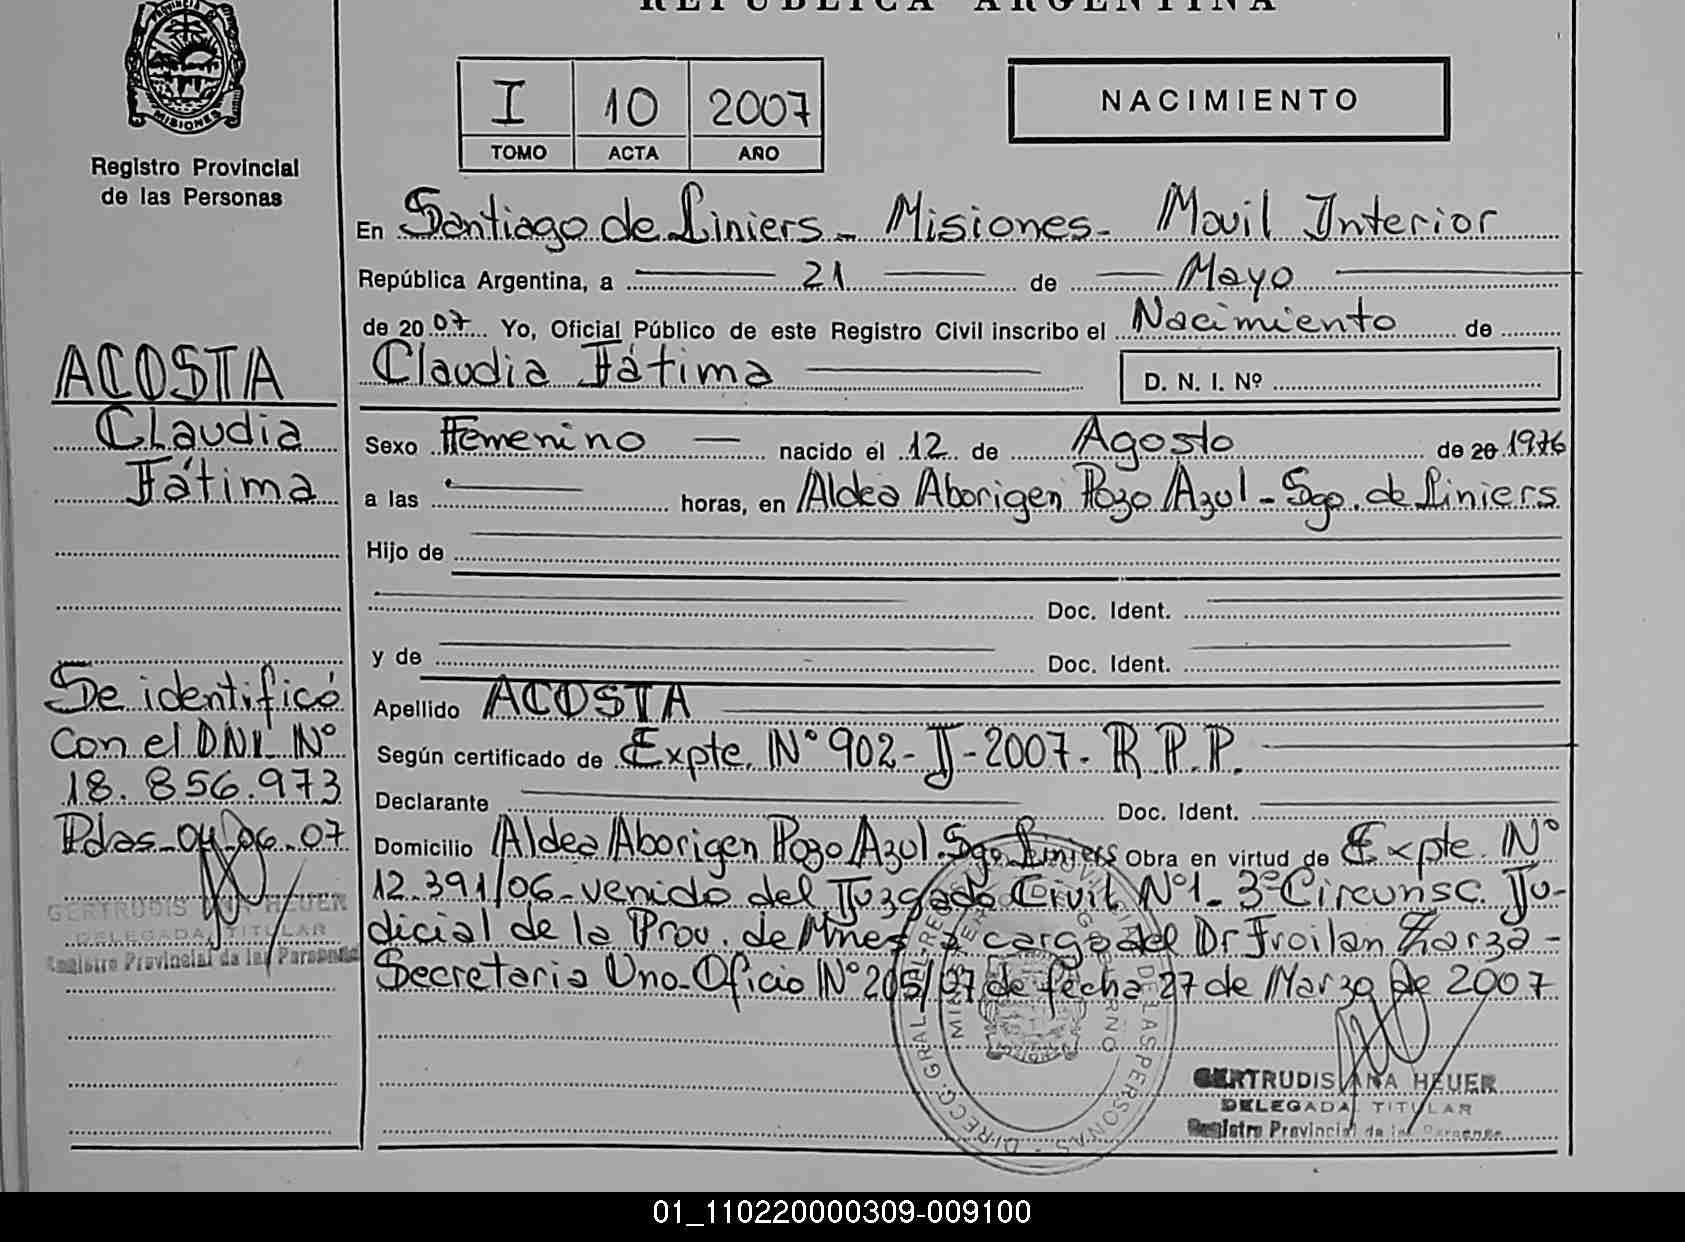 REPUBLICA ARGENTINA
MISIONES
Registro Provincial
de las Personas
I 10 2007
TOMO ACTA AÑO
NACIMIENTO
En Santiago de Liniers - Misiones - Movil Interior
República Argentina, a 21 de Mayo
de 2007 Yo, Oficial Público de este Registro Civil inscribo el Nacimiento de
Claudia Fátima
D. N. I. Nº
ACOSTA
Claudia
Fátima
Sexo Femenino nacido el 12 de Agosto de 20 1976
a las horas, en Aldea Aborigen Pozo Azul - Sgo. de Liniers
Hijo de
Doc. Ident.
y de Doc. Ident.
Apellido ACOSTA
Según certificado de Expte. Nº 902-J-2007. R.P.P.
Declarante Doc. Ident.
Domicilio Aldea Aborigen Pozo Azul. Sgo. Liniers Obra en virtud de Expte. Nº
12.391/06 - venido del Juzgado Civil Nº1 - 3º Circunsc. Ju-
dicial de la Prov. de Mnes a cargo del Dr Froilan Zarza -
Secretaria Uno - Oficio Nº 205/07 de fecha 27 de Marzo de 2007
Se identificó
con el DNI. Nº
18.856.973
Pdas - 04.06.07
GERTRUDIS ANA HEUER
DELEGADA TITULAR
Registro Provincial de las Personas
GERTRUDIS ANA HEUER
DELEGADA TITULAR
Registro Provincial de las Personas
01_110220000309-009100